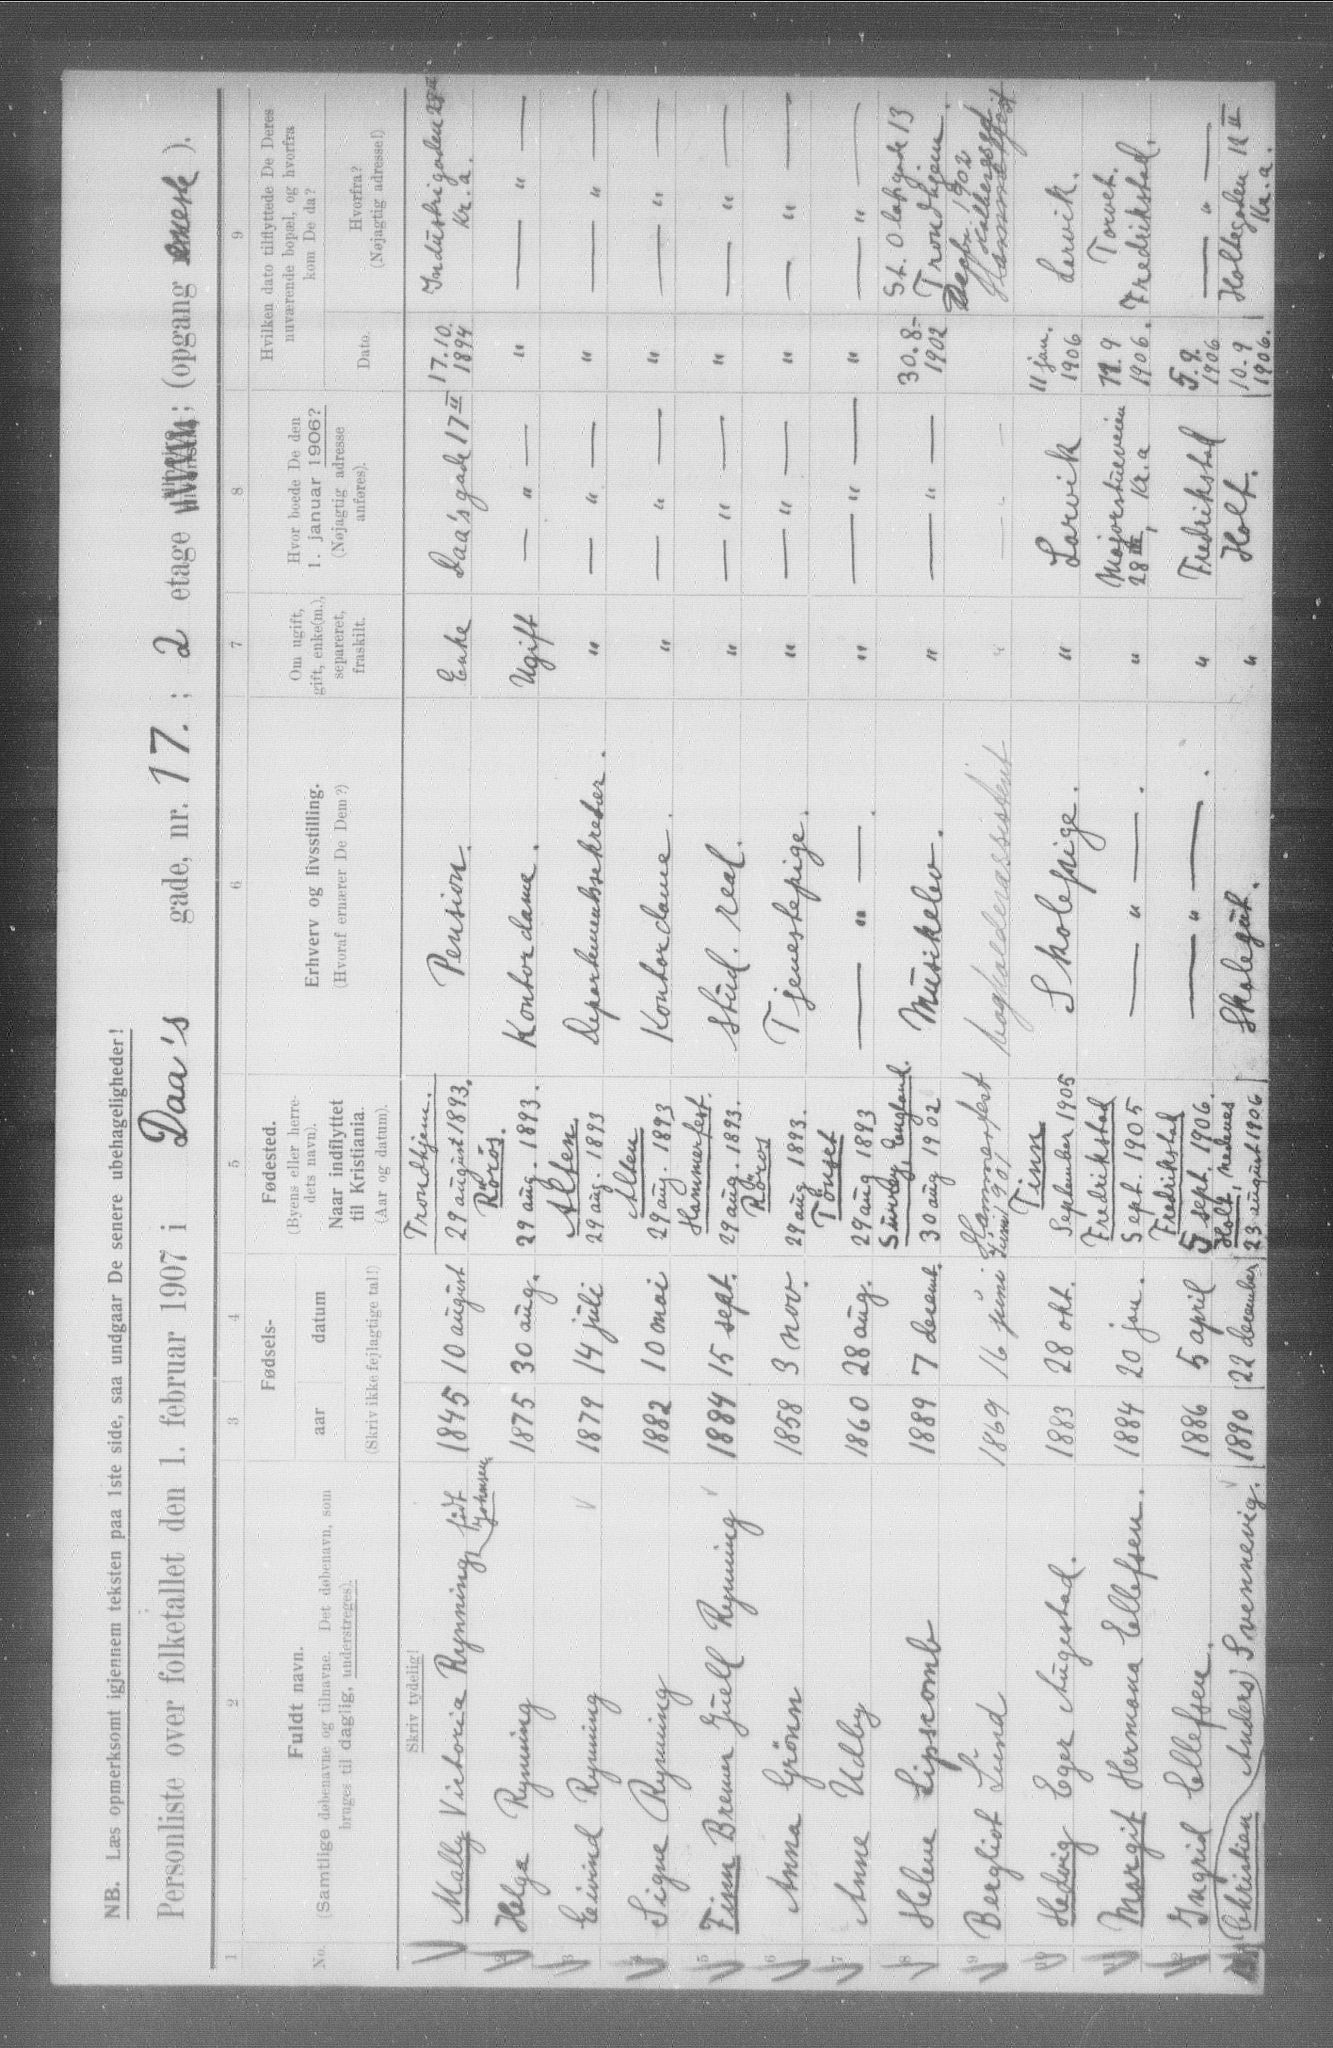 NB. Læs opmerksomt igjennem teksten paa 1ste side, saa undgaar De senere ubehageligheder!
Personliste over folketallet den 1. februar 1907 i Daa's gade, nr. 17. ; 2 etage ; (opgang ).
1 2 3 4 5 6 7 8 9
No.
Fuldt navn.
(Samtlige døbenavne og tilnavne. Det døbenavn, som
bruges til daglig, understreges).
Fødsels-
aar datum
(Skriv ikke fejlagtige tal!)
Fødested.
(Byens eller herre-
dets navn).
Naar indflyttet
til Kristiania.
(Aar og datum).
Erhverv og livsstilling.
(Hvoraf ernærer De Dem?)
Om ugift,
gift, enke(m.),
separeret,
fraskilt.
Hvor boede De den
1. januar 1906?
(Nøjagtig adresse
anføres).
Hvilken dato tilflyttede De Deres
nuværende bopæl, og hvorfra
kom De da?
Dato.
Hvorfra?
(Nøjagtig adresse!)
Skriv tydelig!
Mally Victoria Rynning født Johnsen 1845 10 august Trondhjem. 29 august 1893. Pension. Enke Daa's gade 17 II 17.10. 1894 Industrigaden Kr.a.
2 Helga Rynning 1875 30 aug. Rörös. 29 aug. 1893. Kontordame. Ugift — " — " — " —
3 Eivind Rynning 1879 14 juli Alten 29 aug. 1893 Departementssekretær. " — " — " — " —
4 Signe Rynning 1882 10 mai Alten 29 aug. 1893 Kontordame. " — " — " — " —
5 Finn Bremer Juell Rynning 1884 15 sept. Hammerfest. 29 aug. 1893. Stud. real. " — " — " — " —
6 Anna Grönn 1858 3 nov. Röros 29 aug 1893. Tjenestepige. " — " — " — " —
7 Anne Udby 1860 28 aug. Tönset 29 aug 1893 — " — . " — " — " — " —
8 Helene Lipscomb 1889 7 decemt. Surrey, England. 30 aug 1902 Musikelev. " — " — 30.8.- 1902 St. Olafsgade 13 Trondhjem.
9 Bergliot Lund 1869 16 juni Hammerfest 1901 bogholderassistent " — " — 1902
10 Hedvig Eger Augestad. 1883 28 okt. Tinn September 1905 Skolepige. " Larvik 11 jan. 1906 Larvik.
11 Margit Hermana Ellefsen. 1884 20 jan. Fredrikstad Sept. 1905 — " — . " Majorstueveien 28 III, Kr.a 1906. Torvet. Fredrikstad.
12 Ingrid Ellefsen. 1886 5 april Fredrikstad 5 sept. 1906. — " — . " Fredrikstad 5.9. 1906 — " —
Christian Anders Svennevig. 1890 22 december Holt, Nedenes 23 august 1906 Skolegut. " Holt. 10.9 1906. Holtegaden II Kr.a.